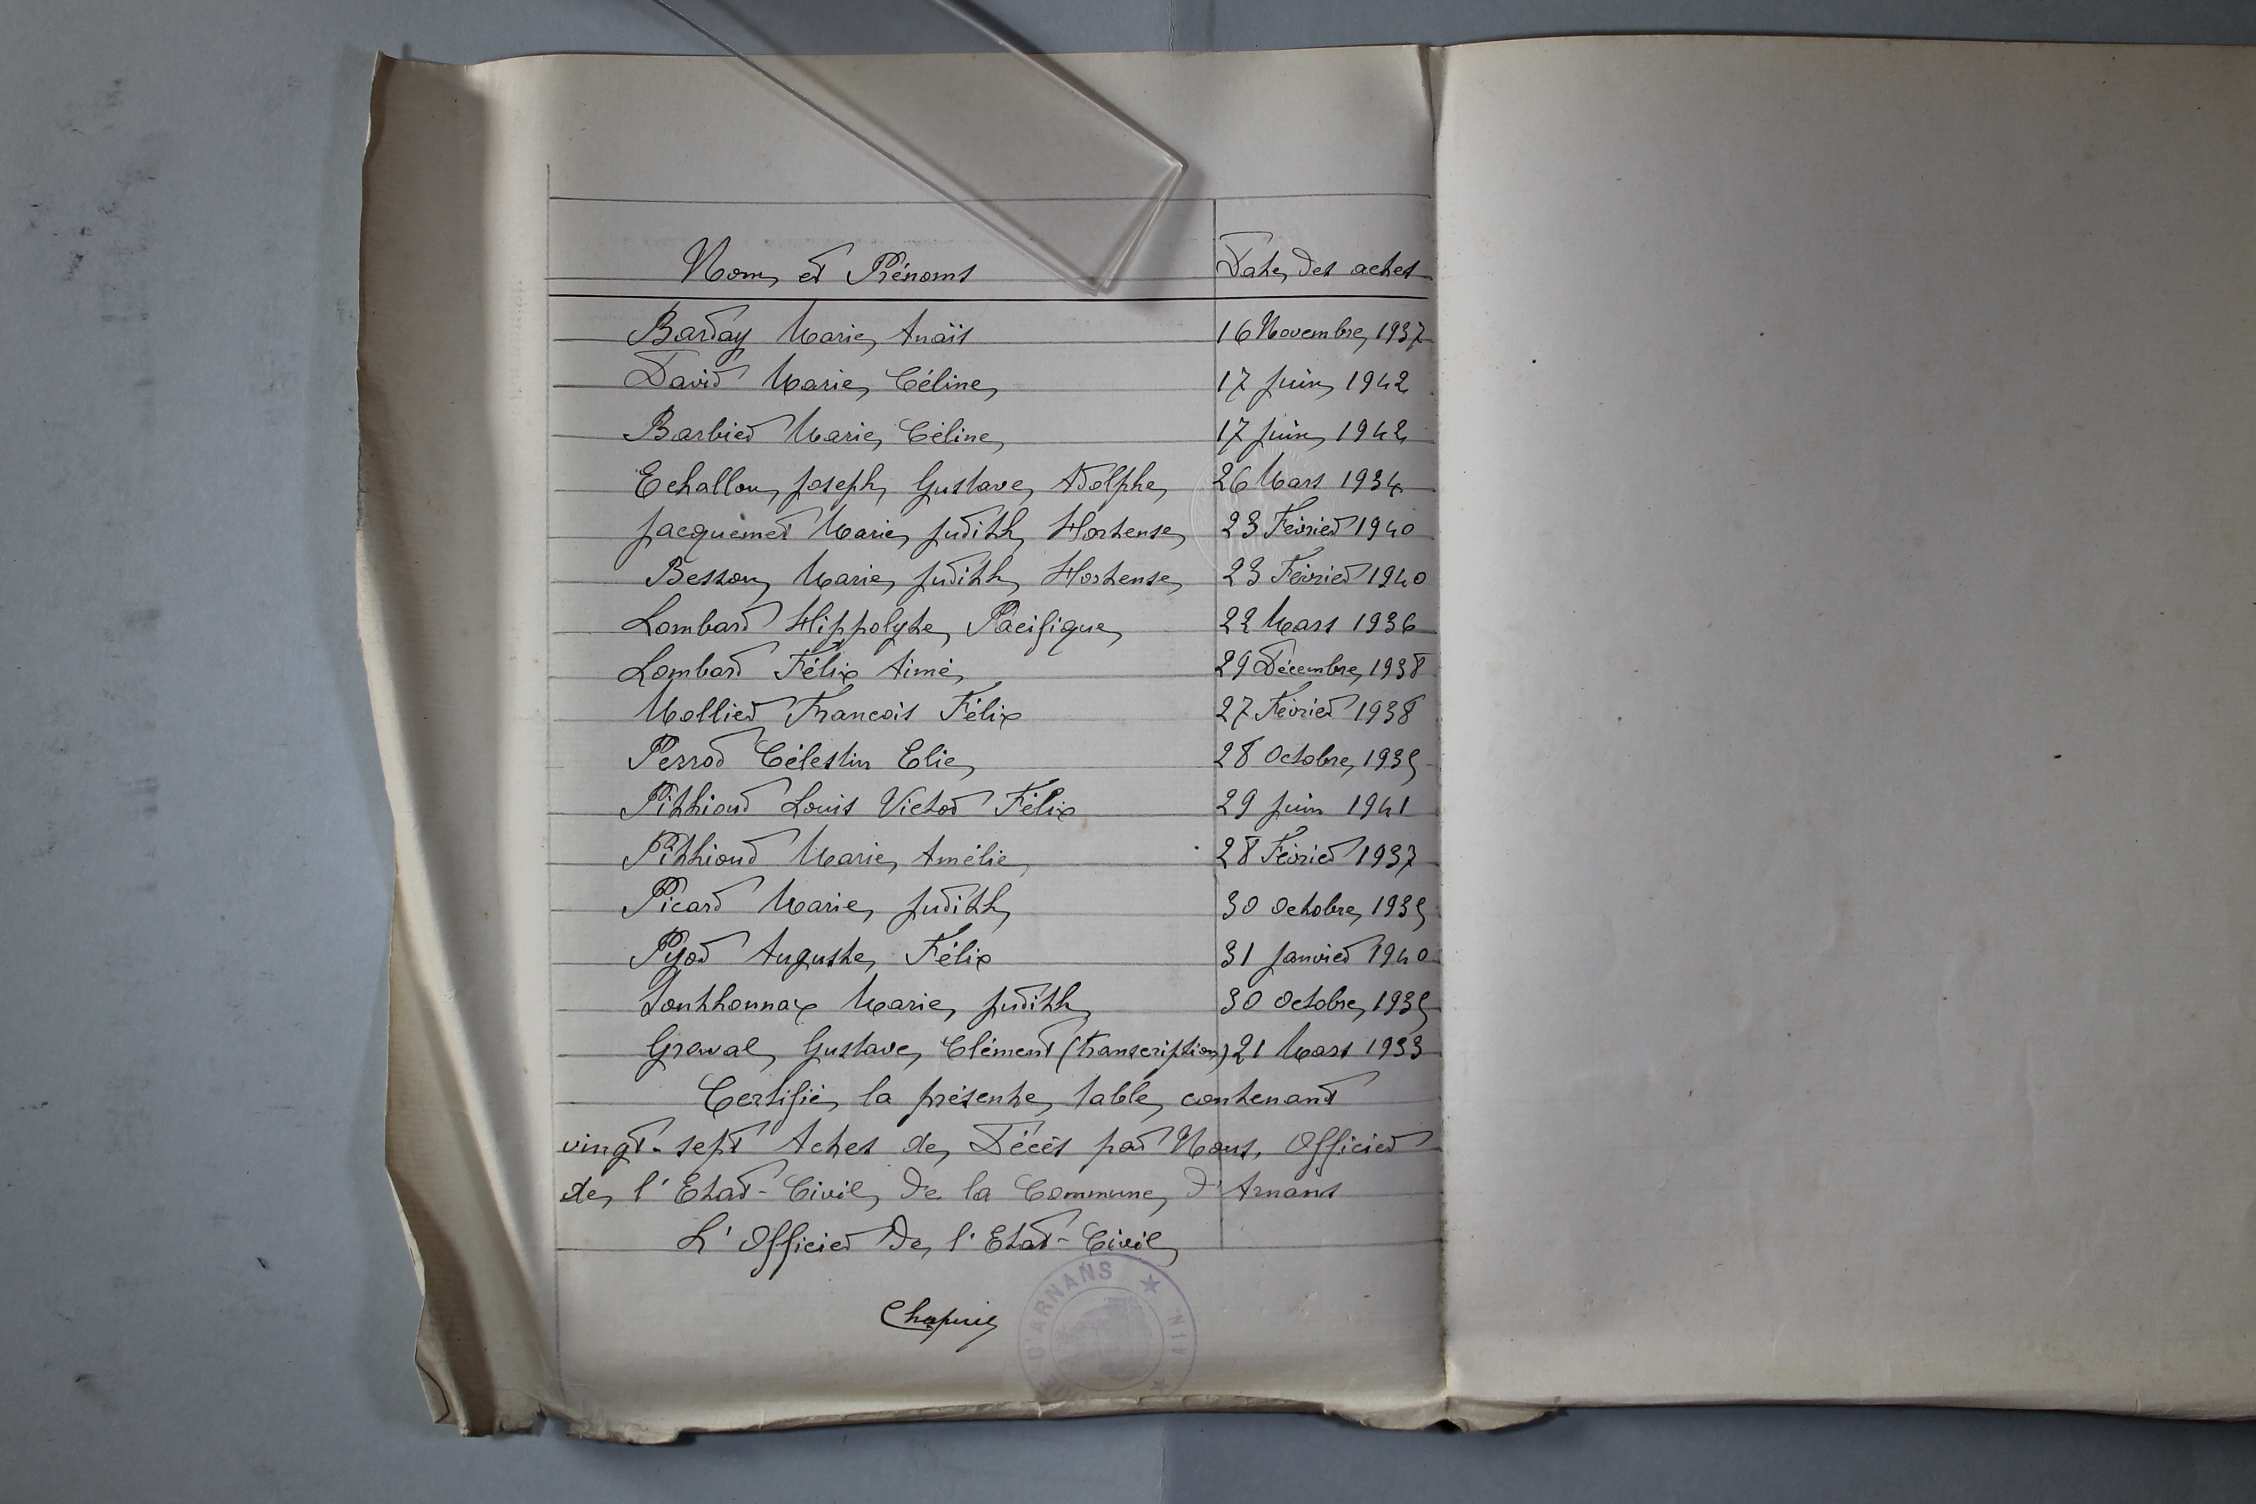 Nom et Prénoms Date des actes
Barday Marie Anaïs 16 Novembre 1937
David Marie Céline 17 Juin 1942
Barbier Marie Céline 17 Juin 1942
Echallon Joseph Gustave Adolphe 26 Mars 1934
Jacquemet Marie Judith Hortense 23 Février 1940
Besson Marie Judith Hortense 23 Février 1940
Lombard Hippolyte Pacifique 22 Mars 1936
Lombard Félix Aimé 29 Décembre 1938
Mollier Francois Félix 27 Février 1938
Perrod Célestin Elie 28 Octobre 1935
Pithioud Louis Victor Félix 29 Juin 1941
Pithioud Marie Amélie 28 Février 1937
Picard Marie Judith 30 Octobre 1935
Pyod Auguste Félix 31 Janvier 1940
Sonthonnax Marie Judith 30 Octobre 1935
Graval Gustave Clément (transcription) 21 Mars 1933
Certifié la présente table contenant
vingt-sept Actes de Décès par Nous, Officier
de l'Etat-Civil de la Commune d'Arnans
L'Officier de l'Etat-Civil
Chapuis
D'ARNANS ★ AIN ★